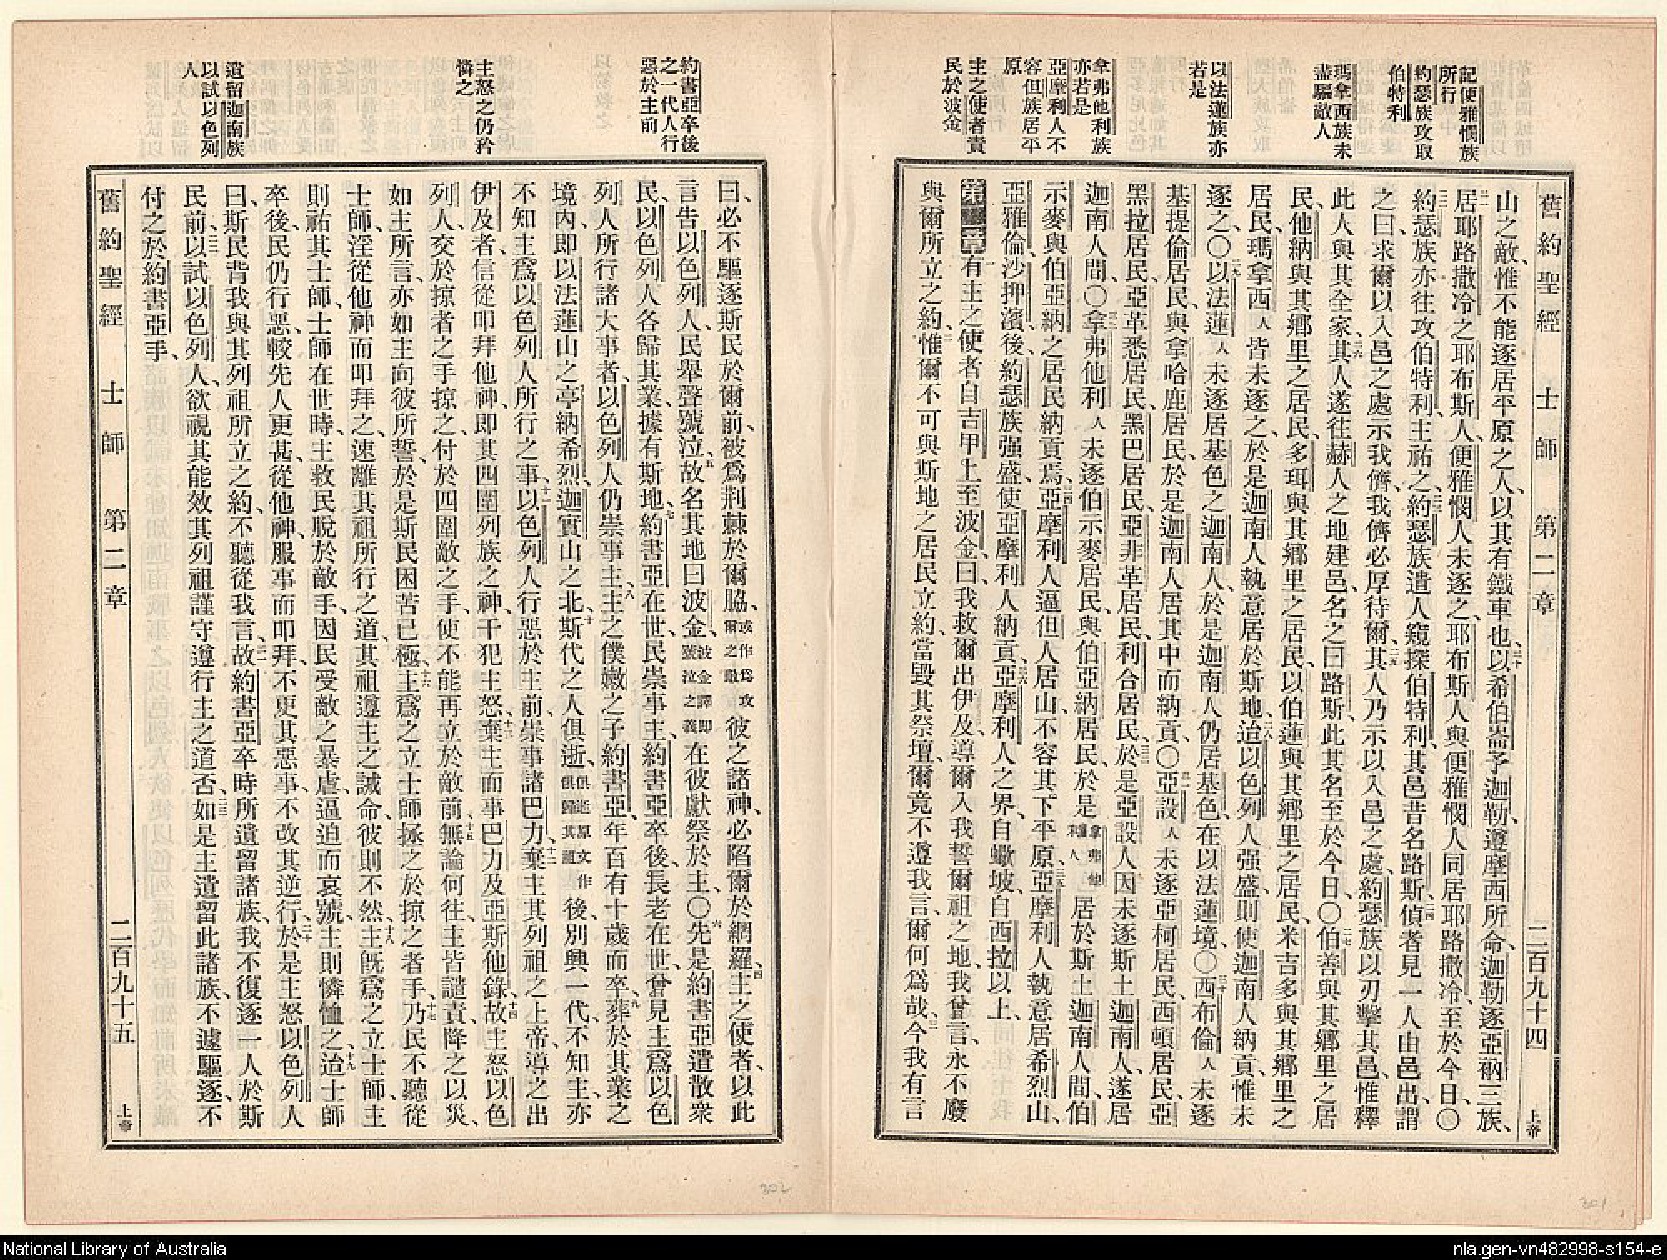 記便雅憫族
所行
約瑟族攻取
伯特利
瑪拿西族未
盡驅敵人
以法蓮族亦
若是
拿弗他利族
亦若是
亞摩利人不
容但族居平
原
主之使者責
民於波金
舊約聖經 士師 第二章 二百九十四 上帝
山之敵、惟不能逐居平原之人、以其有鐵車也、以希伯崙予迦勒、遵摩西所命、迦勒逐亞衲三族、
居耶路撒冷之耶布斯人、便雅憫人未逐之、耶布斯人與便雅憫人同居耶路撒冷、至於今日、〇
約瑟族亦往攻伯特利、主祐之、約瑟族遣人窺探伯特利、其邑昔名路斯、偵者見一人由邑出、謂
之曰、求爾以入邑之處示我儕、我儕必厚待爾、其人乃示以入邑之處、約瑟族以刃擊其邑、惟釋
此人與其全家、其人遂往赫人之地建邑、名之曰路斯、此其名至於今日、〇伯善與其鄉里之居
民、他納與其鄉里之居民、多珥與其鄉里之居民、以伯蓮與其鄉里之居民、米吉多與其鄉里之
居民、瑪拿西人皆未逐之、於是迦南人執意居於斯地、迨以色列人強盛、則使迦南人納貢、惟未
逐之、〇以法蓮人未逐居基色之迦南人、於是迦南人仍居基色、在以法蓮境、〇西布倫人未逐
基提倫居民、與拿哈鹿居民、於是迦南人居其中而納貢、〇亞設人未逐亞柯居民、西頓居民、亞
黑拉居民、亞革悉居民、黑巴居民、亞非革居民、利合居民、於是亞設人因未逐斯土迦南人、遂居
迦南人間、〇拿弗他利人未逐伯示麥居民、與伯亞納居民、於是拿弗他利人居於斯土迦南人間、伯
示麥與伯亞納之居民納貢焉、亞摩利人逼但人居山、不容其下平原、亞摩利人執意居希烈山、
亞雅倫、沙抑濱、後約瑟族强盛、使亞摩利人納貢、亞摩利人之界、自蠍坡、自西拉以上、
第二章 有主之使者自吉甲上至波金、曰、我救爾出伊及、導爾入我誓爾祖之地、我曾言、永不廢
與爾所立之約、惟爾不可與斯地之居民立約、當毀其祭壇、爾竟不遵我言、爾何爲哉、今我有言
約書亞卒後
之一代人行
惡於主前
主怒之仍矜
憐之
遺留迦南族
以試以色列
人
曰、必不驅逐斯民於爾前、被爲荆棘於爾脇、或作爲攻爾之敵彼之諸神、必陷爾於網羅、主之使者、以此
言告以色列人、民舉聲號泣、故名其地曰波金、波金譯即號泣之義在彼獻祭於主、〇先是約書亞遣散衆
民、以色列人各歸其業、據有斯地、約書亞在世、民崇事主、約書亞卒後、長老在世、曾見主爲以色
列人所行諸大事者、以色列人仍崇事主、主之僕嫩之子約書亞、年百有十歲而卒、葬於其業之
境內、即以法蓮山之亭納希烈、迦實山之北、斯代之人俱逝、俱逝原文作俱歸其祖後別興一代、不知主、亦
不知主爲以色列人所行之事、以色列人行惡於主前、崇事諸巴力、棄主其列祖之上帝、導之出
伊及者、信從叩拜他神、即其四圍列族之神、干犯主怒、棄主而事巴力及亞斯他錄、故主怒以色
列人、交於掠者之手、掠之、付於四圍敵之手、使不能再立於敵前、無論何往、主皆譴責、降之以災、
如主所言、亦如主向彼所誓、於是斯民困苦已極、主爲之立士師、拯之於掠之者手、乃民不聽從
士師、淫從他神而叩拜之、速離其祖所行之道、其祖遵主之誡命、彼則不然、主旣爲之立士師、主
則祐其士師、士師在世時、主救民脫於敵手、因民受敵之暴虐、逼迫而哀號、主則憐恤之、迨士師
卒後、民仍行惡、較先人更甚、從他神、服事而叩拜、不更其惡事、不改其逆行、於是主怒以色列人
曰、斯民背我與其列祖所立之約、不聽從我言、故約書亞卒時所遺留諸族、我不復逐一人於斯
民前、以試以色列人、欲視其能效其列祖謹守遵行主之道否、如是主遺留此諸族、不遽驅逐、不
付之於約書亞手、
舊約聖經 士師 第二章 二百九十五 上帝
302
301
National Library of Australia
nla.gen-vn482998-s154-e